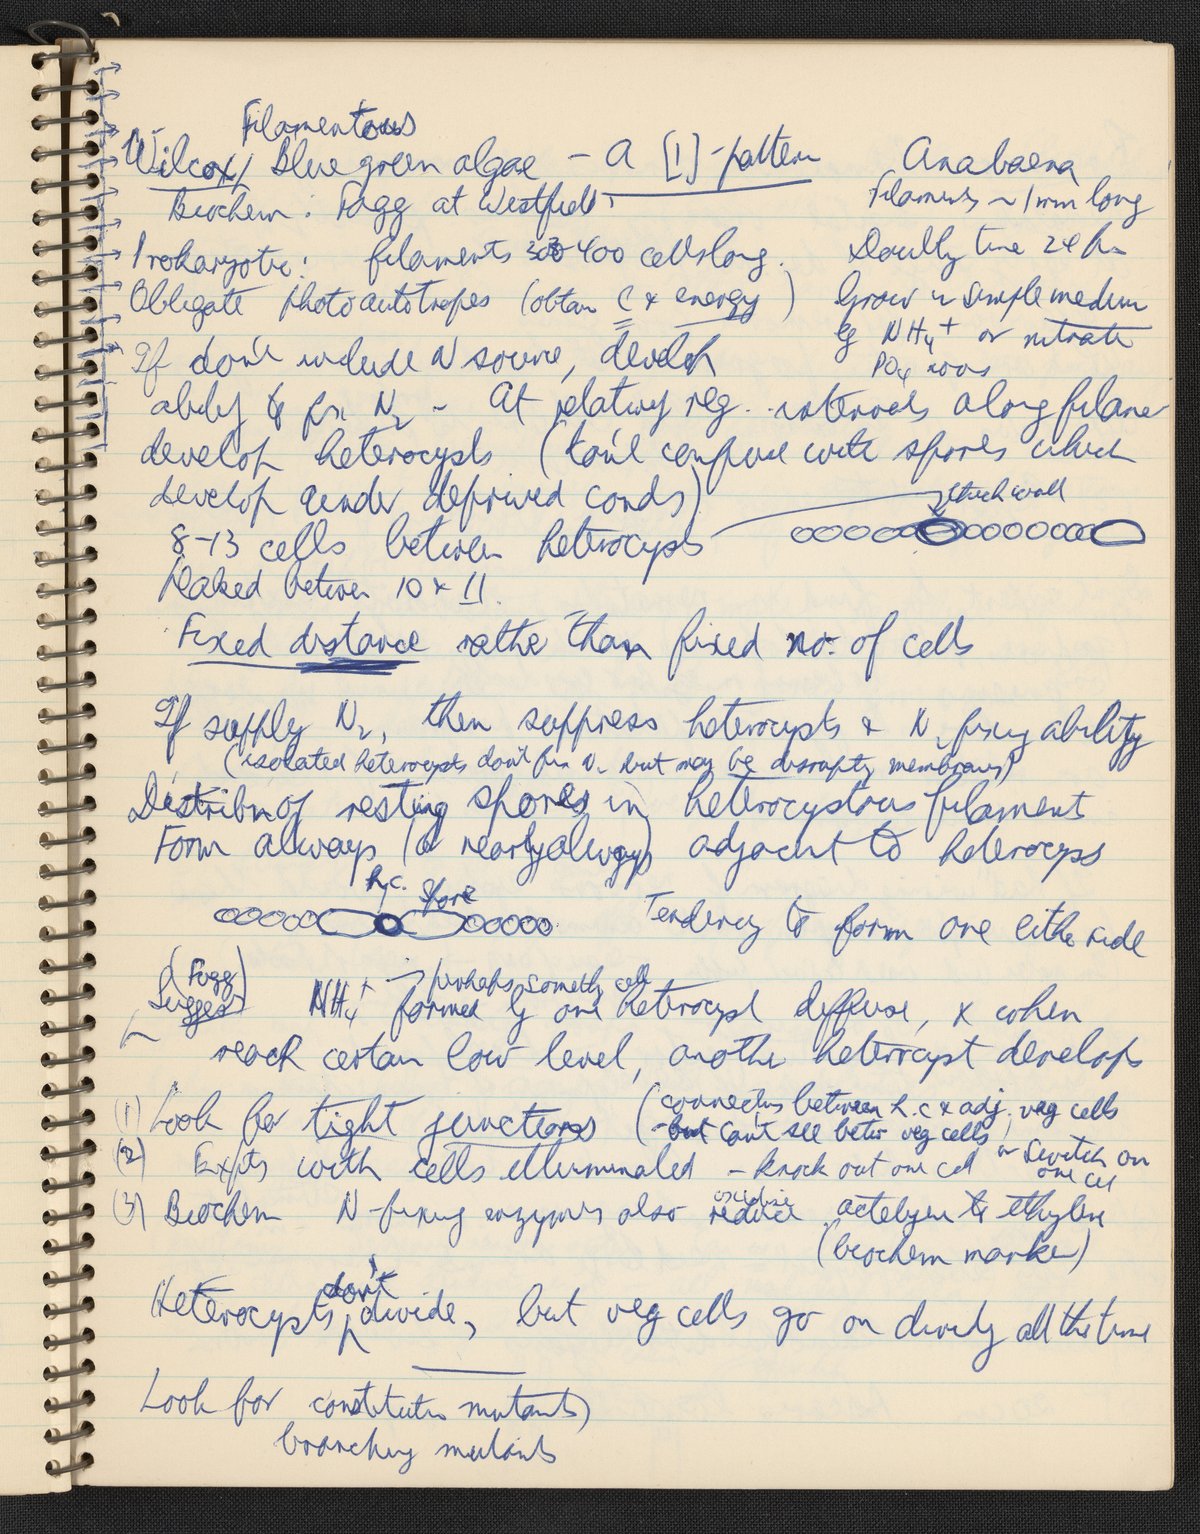 Filamentous
Wilcox / Blue green algae - a [1]-pattern
Anabaena
Biochem: Fogg at Westfield
Filaments ~ 1mm long
Prokaryotic: filaments 400 cells long.
Doubling time 24 hr
Obligate photoautotropes (obtain C & energy)
Grow in simple medium
eg NH4+ or nitrate
PO4 ions
If don't include N source, develop
ability to fix N2 - At relatively reg. intervals along filament
develop heterocysts (don't confuse with spores which
develop under deprived conds)
thick wall
8-13 cells between heterocysts
Peaked between 10 & 11.
Fixed distance rather than fixed no. of cells
If supply N2, then suppress heterocysts & N2 fixing ability
(isolated heterocysts don't fix N2 but may be disrupting membranes)
Distribn of resting spores in heterocystous filament
Form always (or nearly always) adjacent to heterocysts
h.c. spore
Tendency to form one either side
(Fogg)
perhaps something else
Suggests NH4+ formed by one heterocyst diffuse, & when
reach certain low level, another heterocyst develops
(1) Look for tight junctions (connections between h.c & adj. veg cells
- but can't see betw veg cells
(2) Expts with cells illuminated - knock out one cell or switch on
one cell
(3) Biochem N-fixing enzymes also reduce actelyene to ethylene
(biochem marker)
don't
Heterocysts divide, but veg cells go on dividing all the time
Look for constitutive mutants)
branching mutants